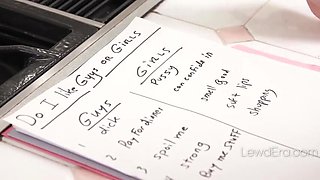 Do I like Guys OR GIRLS
Guys
dick
1 Pay For dinner
2 spoil me
3 strong
4 Buy me stuff
GIRLS
Pussy
can confide in
smell good
soft lips
shopping
LewdEra.com